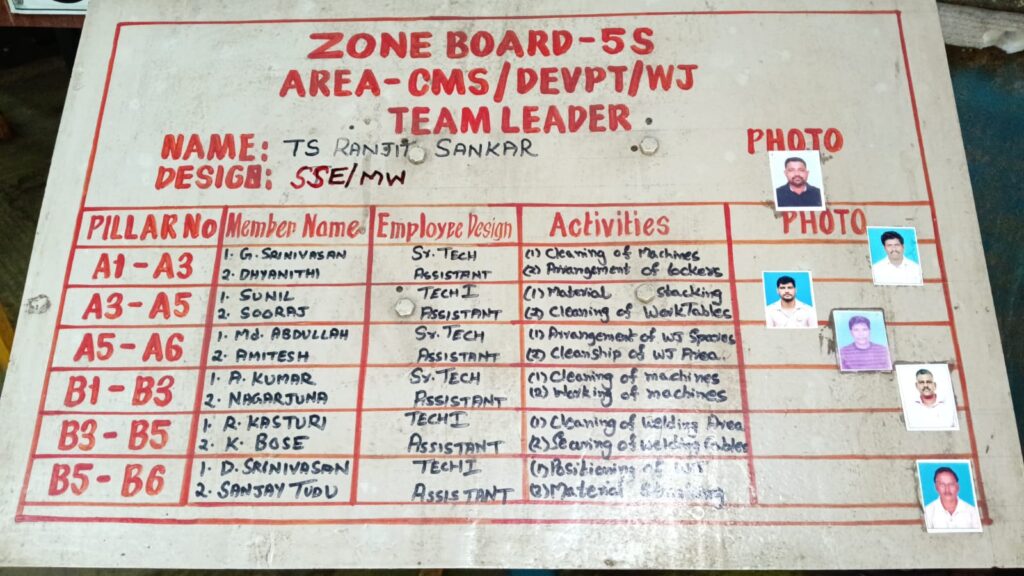 ZONE BOARD-5S
AREA-CMS/DEVPT/WJ
TEAM LEADER
NAME: TS RANJIT SANKAR
DESIGN: SSE/MW
PHOTO
PILLAR NO Member Name Employee Design Activities PHOTO
A1-A3 1. G. SRINIVASAN Sr. TECH (1) Cleaning of Machines
2. DHYANITHI ASSISTANT (2) Arrangement of Lockers
A3-A5 1. SUNIL TECH I (1) Material Stacking
2. SOORAJ ASSISTANT (2) Cleaning of WorkTables
A5-A6 1. Md. ABDULLAH Sr. TECH (1) Arrangement of WJ Species
2. AMITESH ASSISTANT (2) Cleanship of WJ Area
B1-B3 1. A. KUMAR Sr. TECH (1) Cleaning of machines
2. NAGARJUNA ASSISTANT (2) Working of machines
B3-B5 1. R. KASTURI TECH I (1) Cleaning of Welding Area
2. K. BOSE ASSISTANT (2) of Welding Tables
B5-B6 1. D. SRINIVASAN TECH I (1) Positioning of WJ
2. SANJAY TUDU ASSISTANT (2) Material